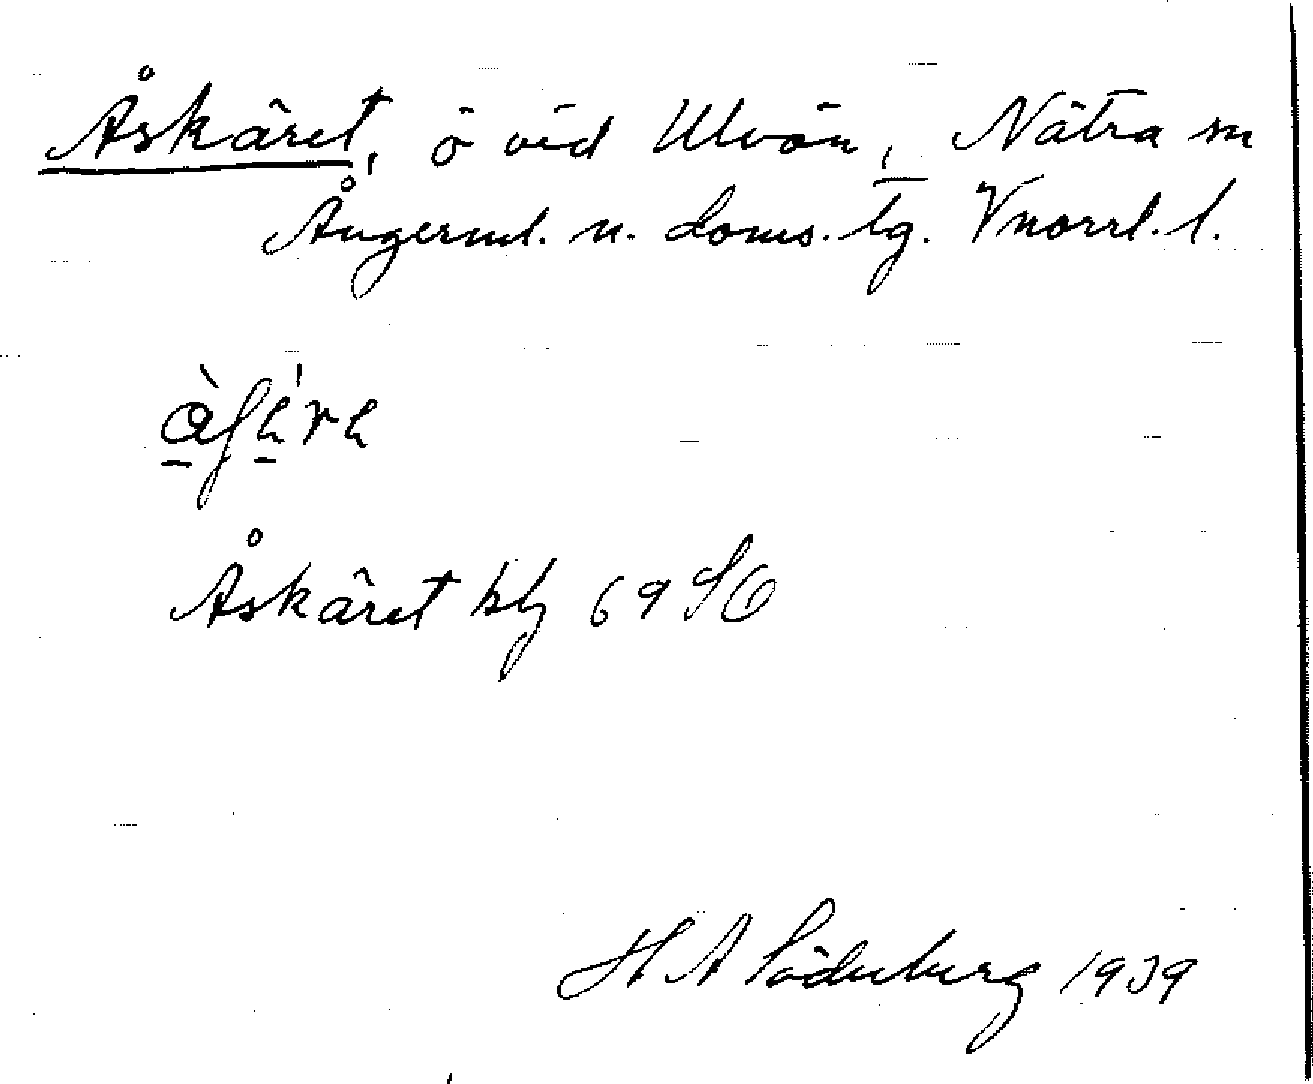 Åskäret, ö vid Ulvön, Nätra sn
Ångerml. n. doms. lg. Vnorrl. l.
Åskäret blg 69 SO
H A Söderberg 1939